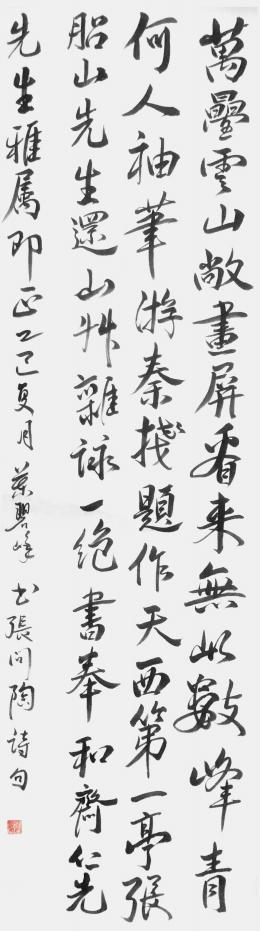 萬疊雲山敞畫屏看来無此數峰青
何人袖筆游秦棧題作天西第一亭張
船山先生還山艸雜詠一绝書奉和齋仁先
先生雅属即正乙巳夏月葉碧峰书張问陶詩句